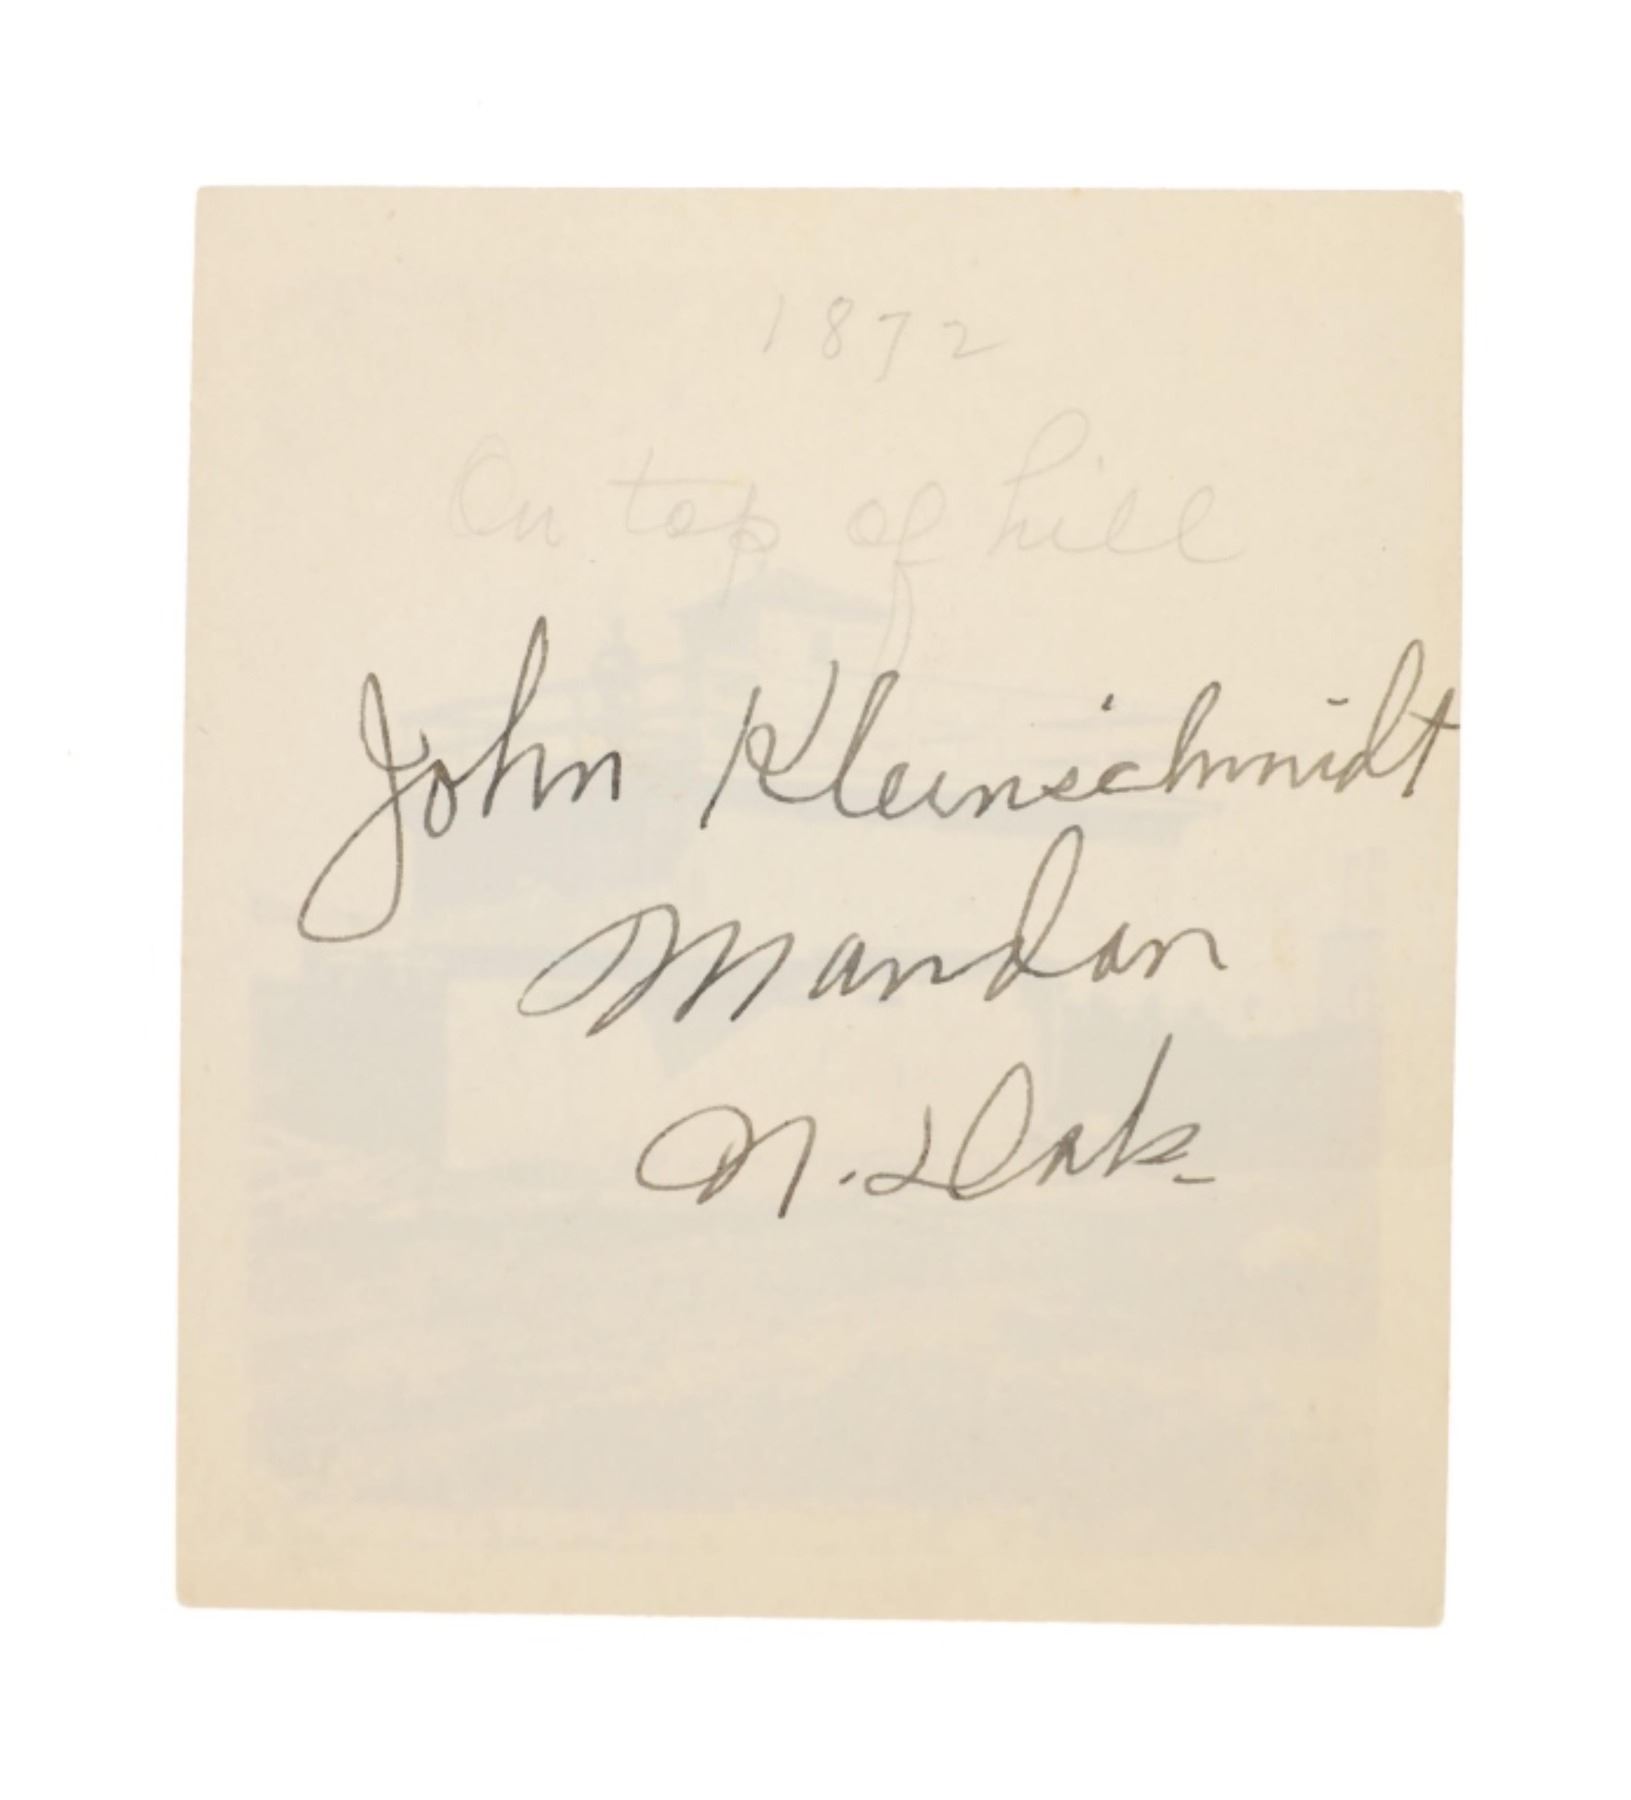 1872
On top of hill
John Kleinschmidt
Mandan
N. Dak.